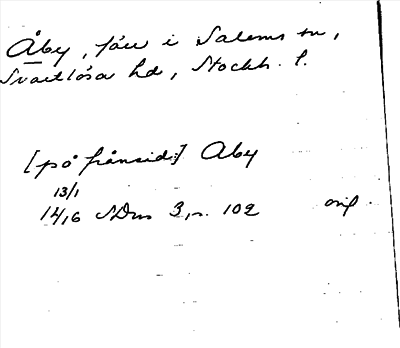 Åby, fáu i Salems sn,
Svartlösa hd, Stockh. l.
[på frånsid:] Aby
13/1
1416 SDns 3, s. 102 orig.